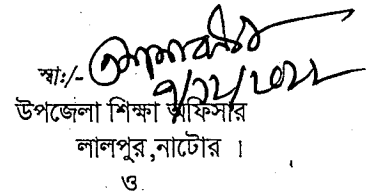 স্বা:/-
৭/১২/২০২২
উপজেলা শিক্ষা অফিসার
লালপুর,নাটোর ।
ও